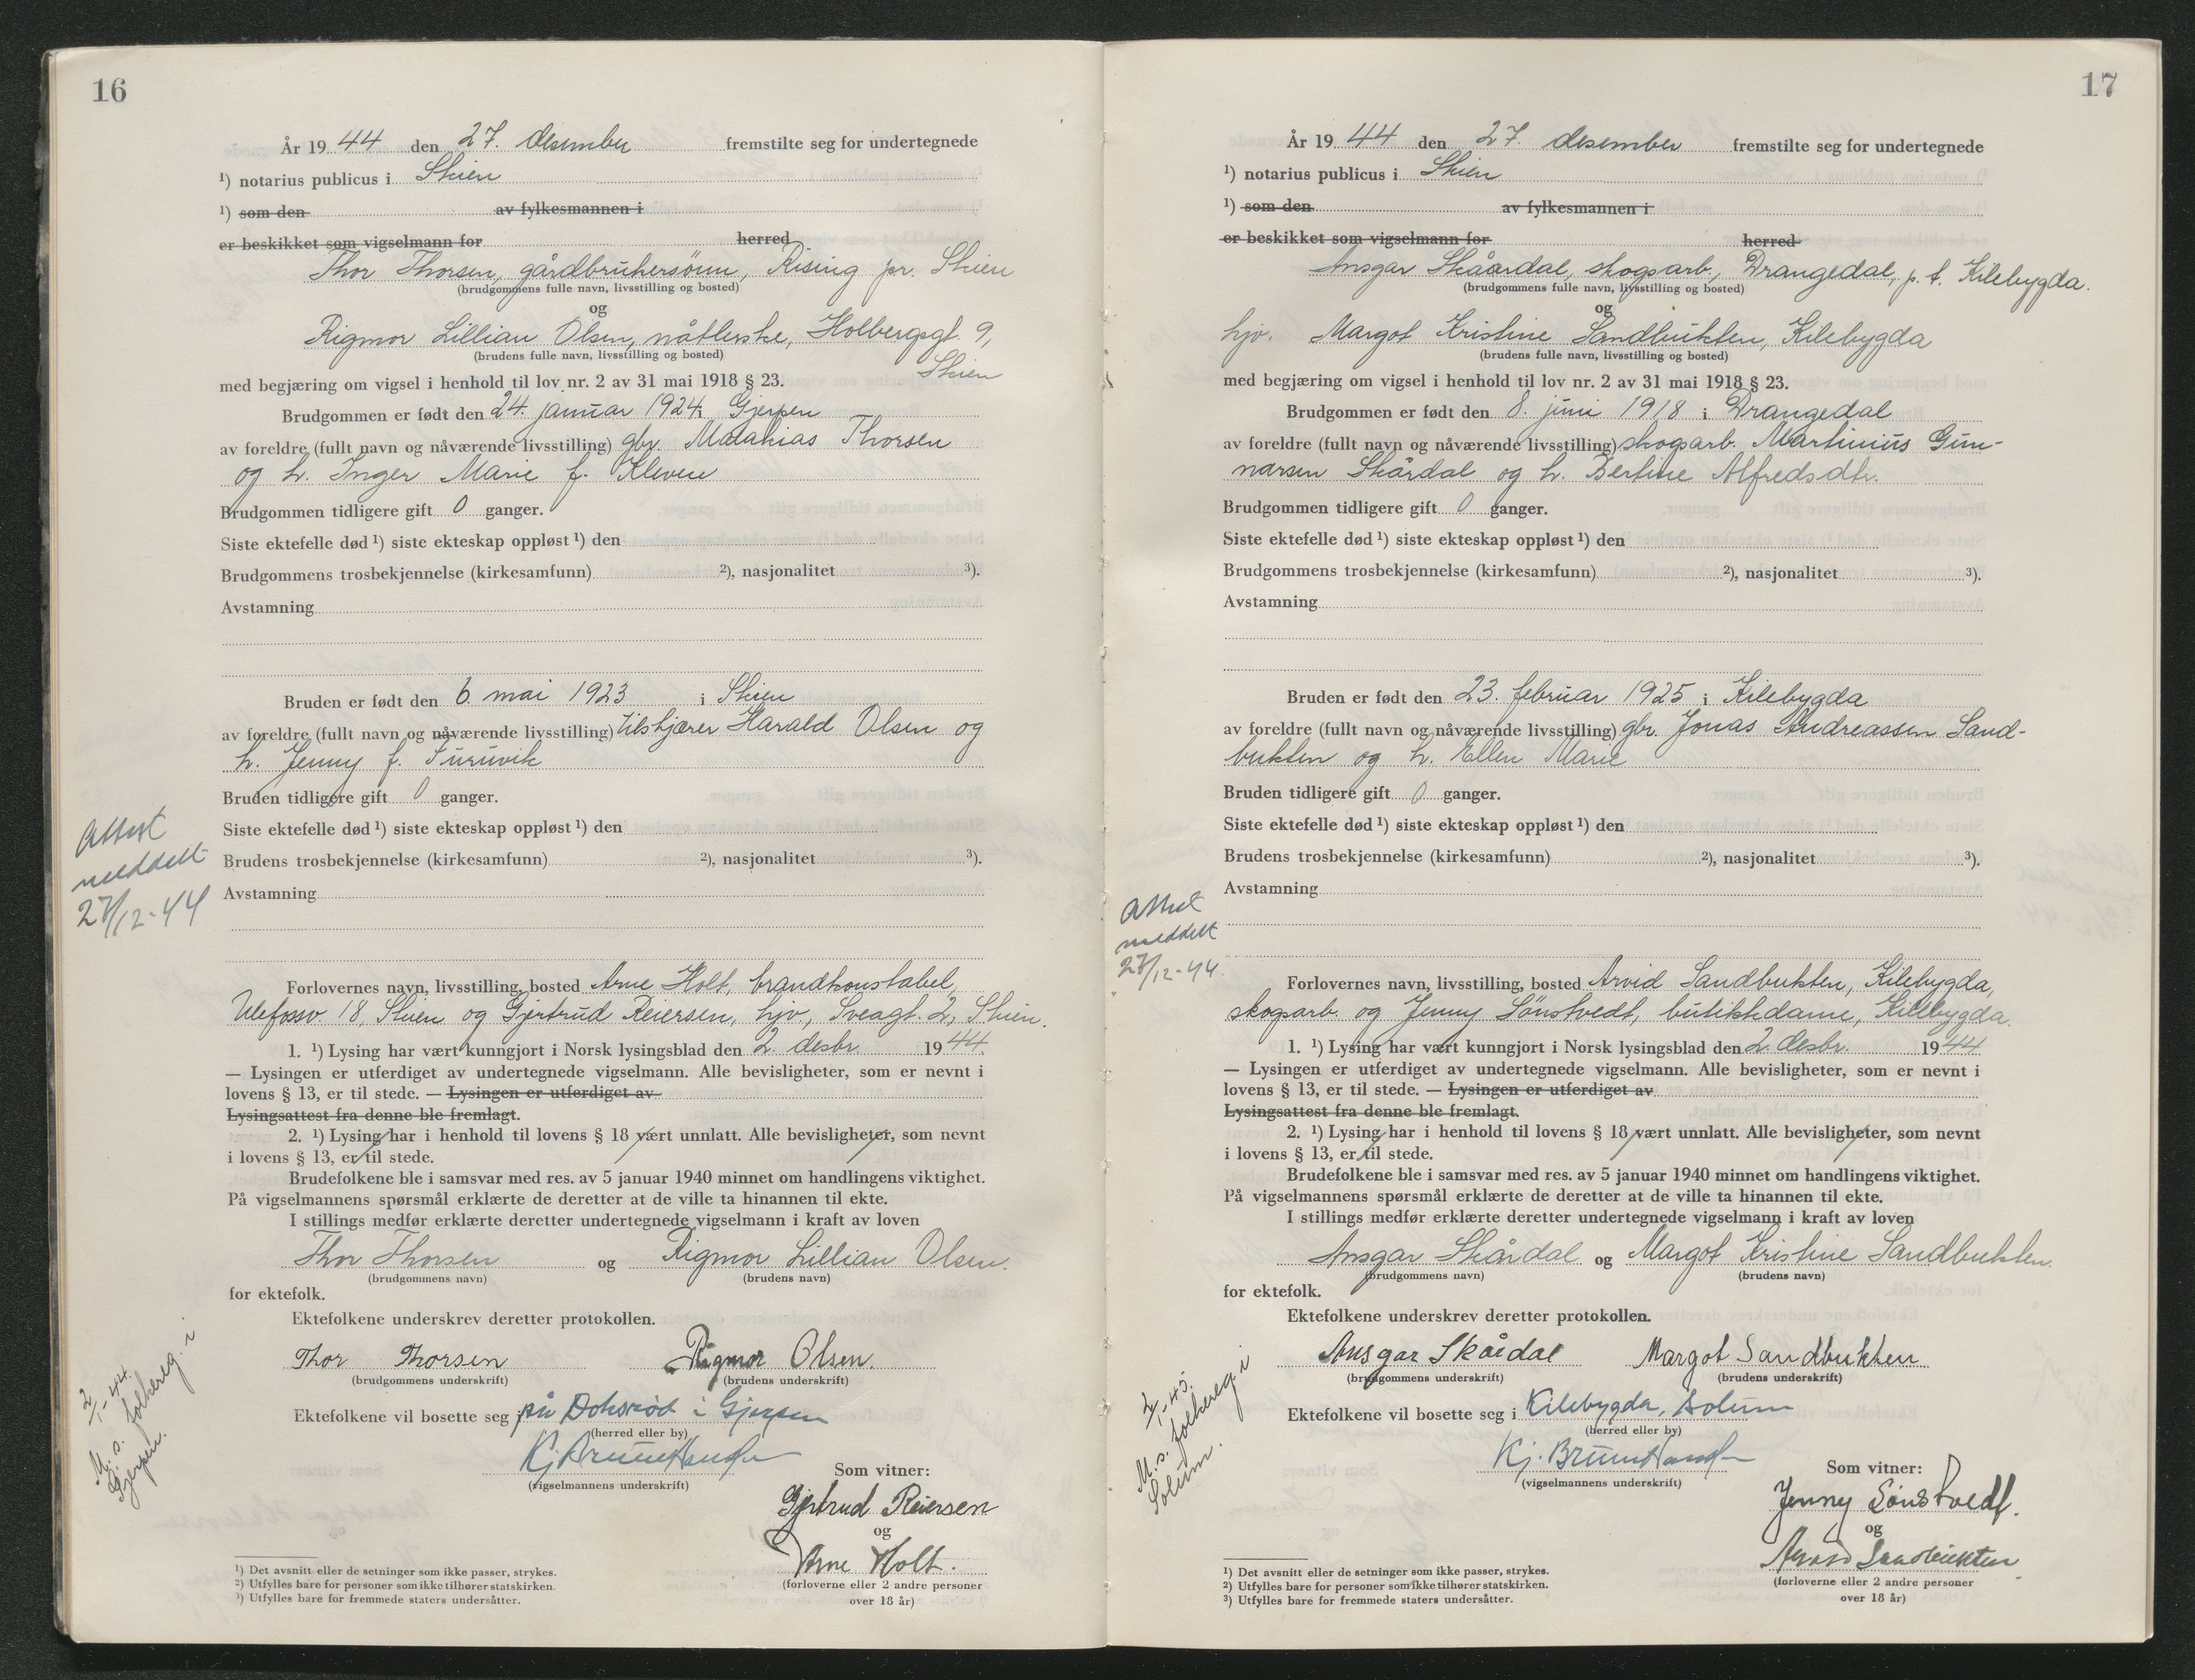 16
År 19 44 den 27. desember fremstilte seg for undertegnede
¹) notarius publicus i Skien
¹) som den av fylkesmannen i
er beskikket som vigselmann for herred
Thor Thorsen, gårdbrukersönn, Rising pr. Skien
(brudgommens fulle navn, livsstilling og bosted)
og
Rigmor Lillian Olsen, nåtlerske, Holbergsgt. 9,
(brudens fulle navn, livsstilling og bosted)
Skien
med begjæring om vigsel i henhold til lov nr. 2 av 31 mai 1918 § 23.
Brudgommen er født den 24. januar 1924 i Gjerpen
av foreldre (fullt navn og nåværende livsstilling) gbr. Matahias Thorsen
og h. Inger Marie f. Kleven
Brudgommen tidligere gift 0 ganger.
Siste ektefelle død ¹) siste ekteskap oppløst ¹) den
Brudgommens trosbekjennelse (kirkesamfunn) ²), nasjonalitet ³).
Avstamning
Bruden er født den 6. mai 1923 i Skien
av foreldre (fullt navn og nåværende livsstilling) tilskjærer Harald Olsen og
h. Jenny f. Furuvik
Bruden tidligere gift 0 ganger.
Siste ektefelle død ¹) siste ekteskap oppløst ¹) den
Brudens trosbekjennelse (kirkesamfunn) ²), nasjonalitet ³).
Avstamning
Attest
meddelt
27/12-44
Forlovernes navn, livsstilling, bosted Arne Holt, brandkonstabel,
Ulefossv 18, Skien og Gjertrud Reiersen, hjv., Sveagt. 2, Skien.
1. ¹) Lysing har vært kunngjort i Norsk lysingsblad den 2. desbr. 19 44.
— Lysingen er utferdiget av undertegnede vigselmann. Alle bevisligheter, som er nevnt i
lovens § 13, er til stede. — Lysingen er utferdiget av
Lysingsattest fra denne ble fremlagt.
2. ¹) Lysing har i henhold til lovens § 18 vært unnlatt. Alle bevisligheter, som nevnt
i lovens § 13, er til stede.
Brudefolkene ble i samsvar med res. av 5 januar 1940 minnet om handlingens viktighet.
På vigselmannens spørsmål erklærte de deretter at de ville ta hinannen til ekte.
I stillings medfør erklærte deretter undertegnede vigselmann i kraft av loven
Thor Thorsen og Rigmor Lillian Olsen.
(brudgommens navn) (brudens navn)
for ektefolk.
Ektefolkene underskrev deretter protokollen.
Thor Thorsen Rigmor Olsen.
(brudgommens underskrift) (brudens underskrift)
Ektefolkene vil bosette seg i på i Gjerpen
(herred eller by)
2/1-44.
M. s. folkereg. i
Gjerpen.
(vigselmannens underskrift)
Som vitner:
Gjertrud Reiersen
og
Arne Holt.
(forloverne eller 2 andre personer
over 18 år)
¹) Det avsnitt eller de setninger som ikke passer, strykes.
²) Utfylles bare for personer som ikke tilhører statskirken.
³) Utfylles bare for fremmede staters undersåtter.
17
År 19 44 den 27. desember fremstilte seg for undertegnede
¹) notarius publicus i Skien
¹) som den av fylkesmannen i
er beskikket som vigselmann for herred
Ansgar Skåardal, skogsarb., Drangedal, p. t. Kilebygda.
(brudgommens fulle navn, livsstilling og bosted)
og
hjv. Margot Kristine Sandbukten, Kilebygda
(brudens fulle navn, livsstilling og bosted)
med begjæring om vigsel i henhold til lov nr. 2 av 31 mai 1918 § 23.
Brudgommen er født den 8. juni 1918 i Drangedal
av foreldre (fullt navn og nåværende livsstilling) skogsarb. Martinius Gun-
narsen Skårdal og h. Bertine Alfredsdtr.
Brudgommen tidligere gift 0 ganger.
Siste ektefelle død ¹) siste ekteskap oppløst ¹) den
Brudgommens trosbekjennelse (kirkesamfunn) ²), nasjonalitet ³).
Avstamning
Bruden er født den 23. februar 1925 i Kilebygda
av foreldre (fullt navn og nåværende livsstilling) gbr. Jonas Andreassen Sand-
bukten og h. Ellen Marie
Bruden tidligere gift 0 ganger.
Siste ektefelle død ¹) siste ekteskap oppløst ¹) den
Brudens trosbekjennelse (kirkesamfunn) ²), nasjonalitet ³).
Avstamning
Attest
meddelt
27/12-44.
Forlovernes navn, livsstilling, bosted Arvid Sandbukten, Kilebygda,
skogsarb. og Jenny Sönstvedt, butikkdame, Kilebygda.
1. ¹) Lysing har vært kunngjort i Norsk lysingsblad den 2. desbr. 19 44
— Lysingen er utferdiget av undertegnede vigselmann. Alle bevisligheter, som er nevnt i
lovens § 13, er til stede. — Lysingen er utferdiget av
Lysingsattest fra denne ble fremlagt.
2. ¹) Lysing har i henhold til lovens § 18 vært unnlatt. Alle bevisligheter, som nevnt
i lovens § 13, er til stede.
Brudefolkene ble i samsvar med res. av 5 januar 1940 minnet om handlingens viktighet.
På vigselmannens spørsmål erklærte de deretter at de ville ta hinannen til ekte.
I stillings medfør erklærte deretter undertegnede vigselmann i kraft av loven
Ansgar Skårdal og Margot Kristine Sandbukten.
(brudgommens navn) (brudens navn)
for ektefolk.
Ektefolkene underskrev deretter protokollen.
Ansgar Skårdal Margot Sandbukten
(brudgommens underskrift) (brudens underskrift)
Ektefolkene vil bosette seg i Kilebygda, Solum
(herred eller by)
2/1-45.
M. s. folkereg. i
Solum.
(vigselmannens underskrift)
Som vitner:
Jenny Sönstvedt.
og
Arvid Sandbukten
(forloverne eller 2 andre personer
over 18 år)
¹) Det avsnitt eller de setninger som ikke passer, strykes.
²) Utfylles bare for personer som ikke tilhører statskirken.
³) Utfylles bare for fremmede staters undersåtter.